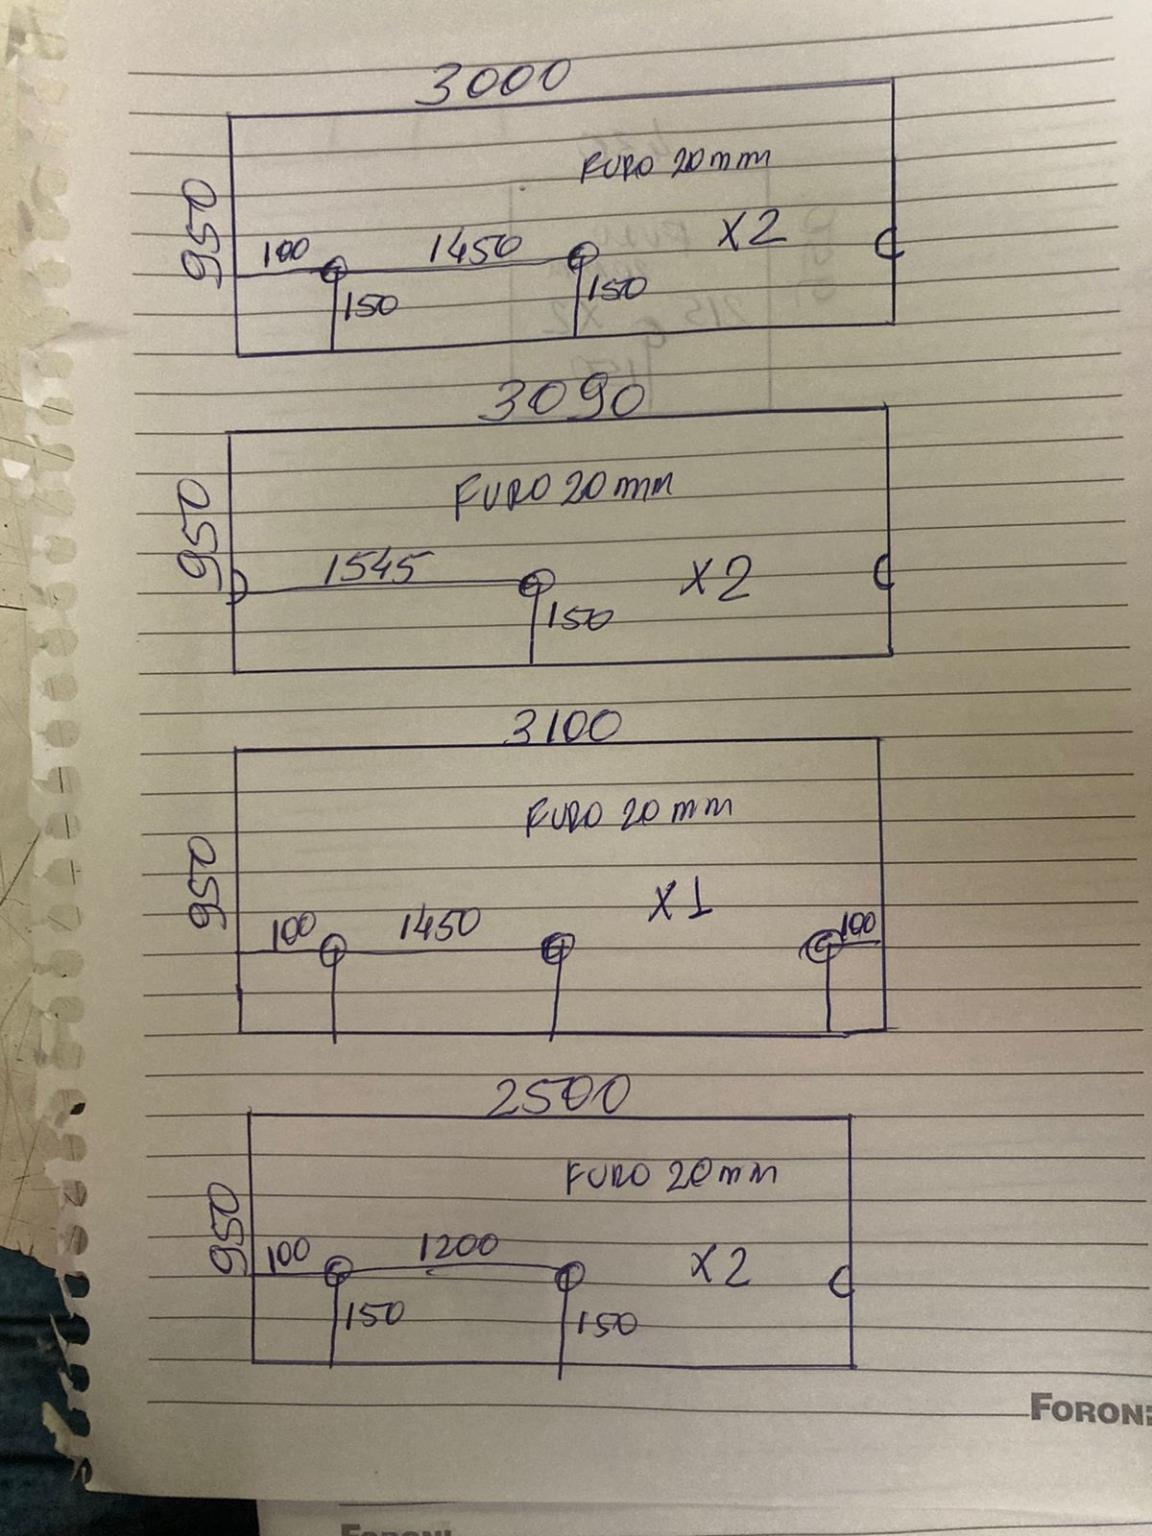 3000
FURO 20mm
950
100
1450
X2
150
150
3090
FURO 20mm
950
1545
X2
150
3100
FURO 20mm
950
100
1450
X1
100
2500
FURO 20mm
950
100
1200
X2
150
150
FORONI
FORONI